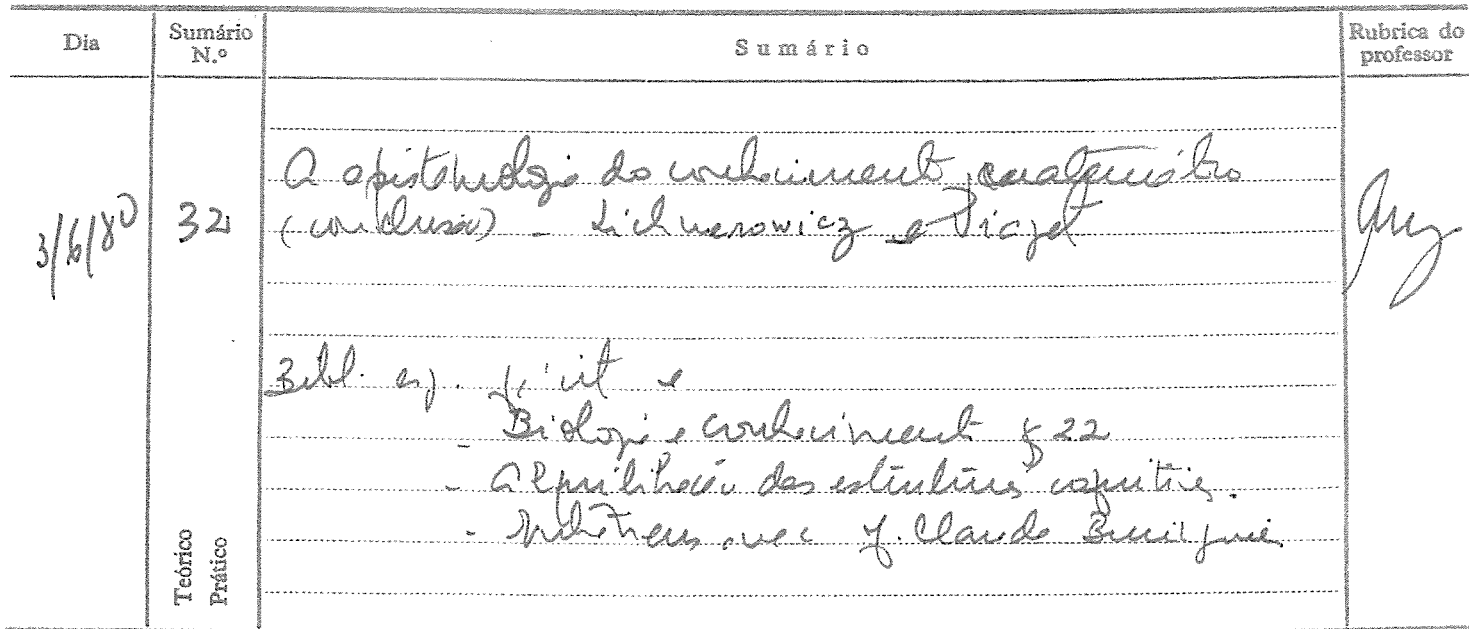 Dia
Sumário N.º
Sumário
Rubrica do professor
3/6/80
32
A epistemologia do conhecimento matemático
(conclusão) - Lichnerowicz e Piaget
Bibl. já cit e
- Biologia e conhecimento § 22
- A Equilibração das estruturas cognitivas.
- Entretiens avec J. Claude Bringuier
Teórico
Prático